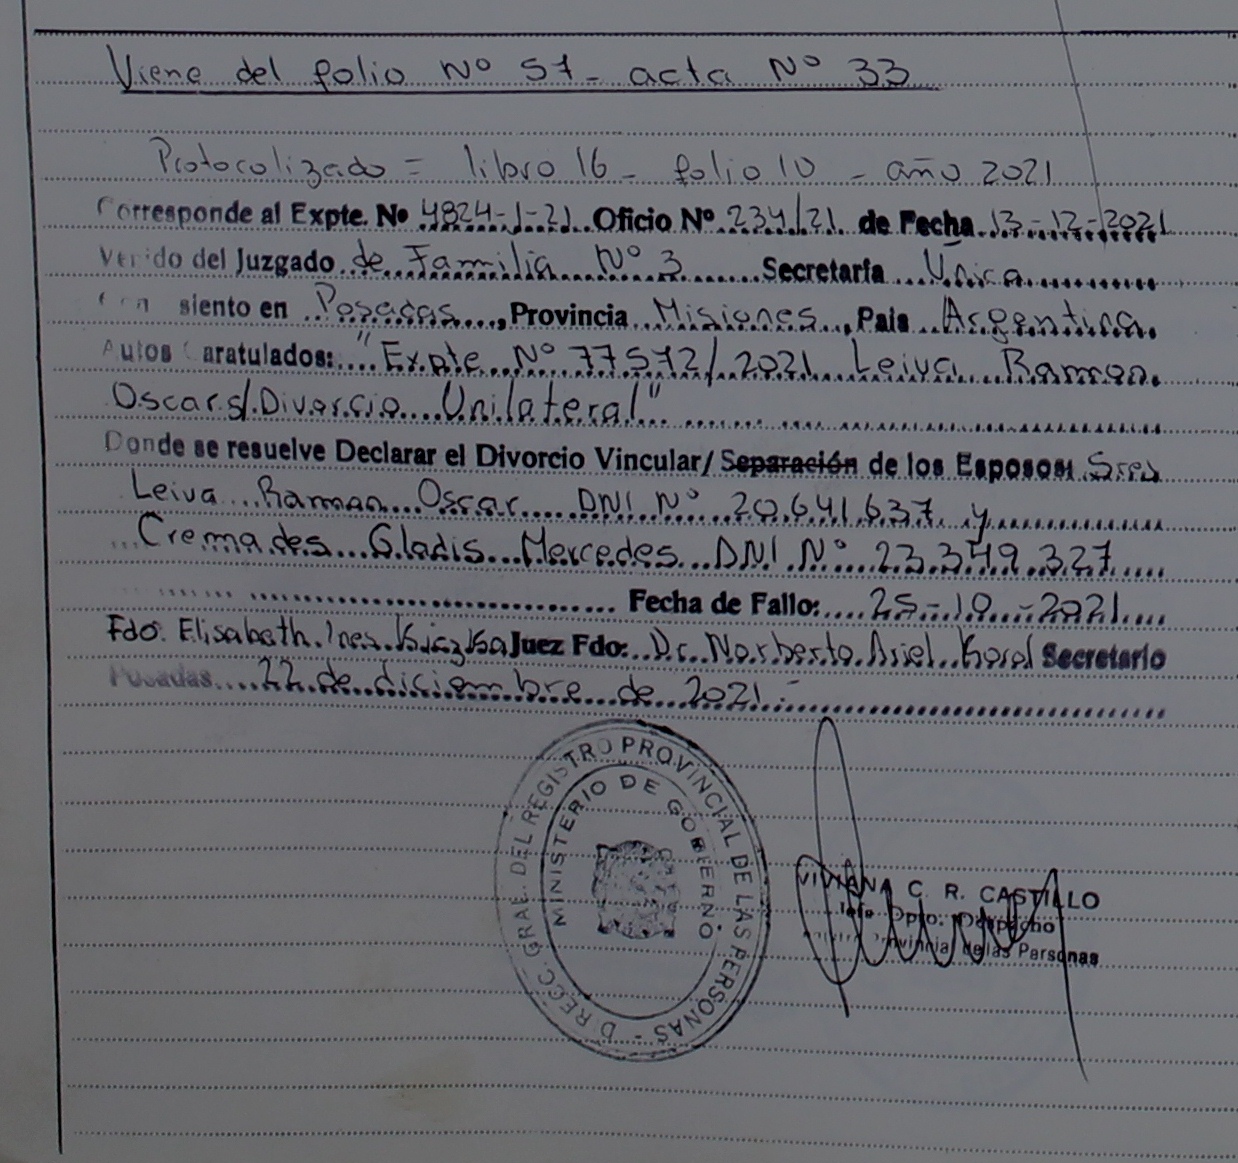 Viene del folio Nº 57 - acta Nº 33
Protocolizado = libro 16 - folio 10 - año 2021
Corresponde al Expte. Nº 4824-1-21 Oficio Nº 234/21 de Fecha 13-12-2021
Venido del Juzgado de Familia Nº 3 Secretaría Única
Con siento en Posadas, Provincia Misiones, País Argentina.
Autos Caratulados: "Expte Nº 77572/2021 Leiva Ramon
Oscar s/ Divorcio Unilateral"
Donde se resuelve Declarar el Divorcio Vincular/ Separación de los Esposos: Sres
Leiva Ramon Oscar DNI Nº 20.641.637 y
Cremades Gladis Mercedes DNI Nº 23.379.327
Fecha de Fallo: 25-10-2021
Fdo. Elisabeth Ines Juez Fdo: Dr. Norberto Ariel Koral Secretario
Posadas 22 de diciembre de 2021.-
DIRECC. GRAL. DEL REGISTRO PROVINCIAL DE LAS PERSONAS -
MINISTERIO DE GOBIERNO
VIVIANA C. R. CASTILLO
Jefe Dpto. Despacho
Provincial de las Personas